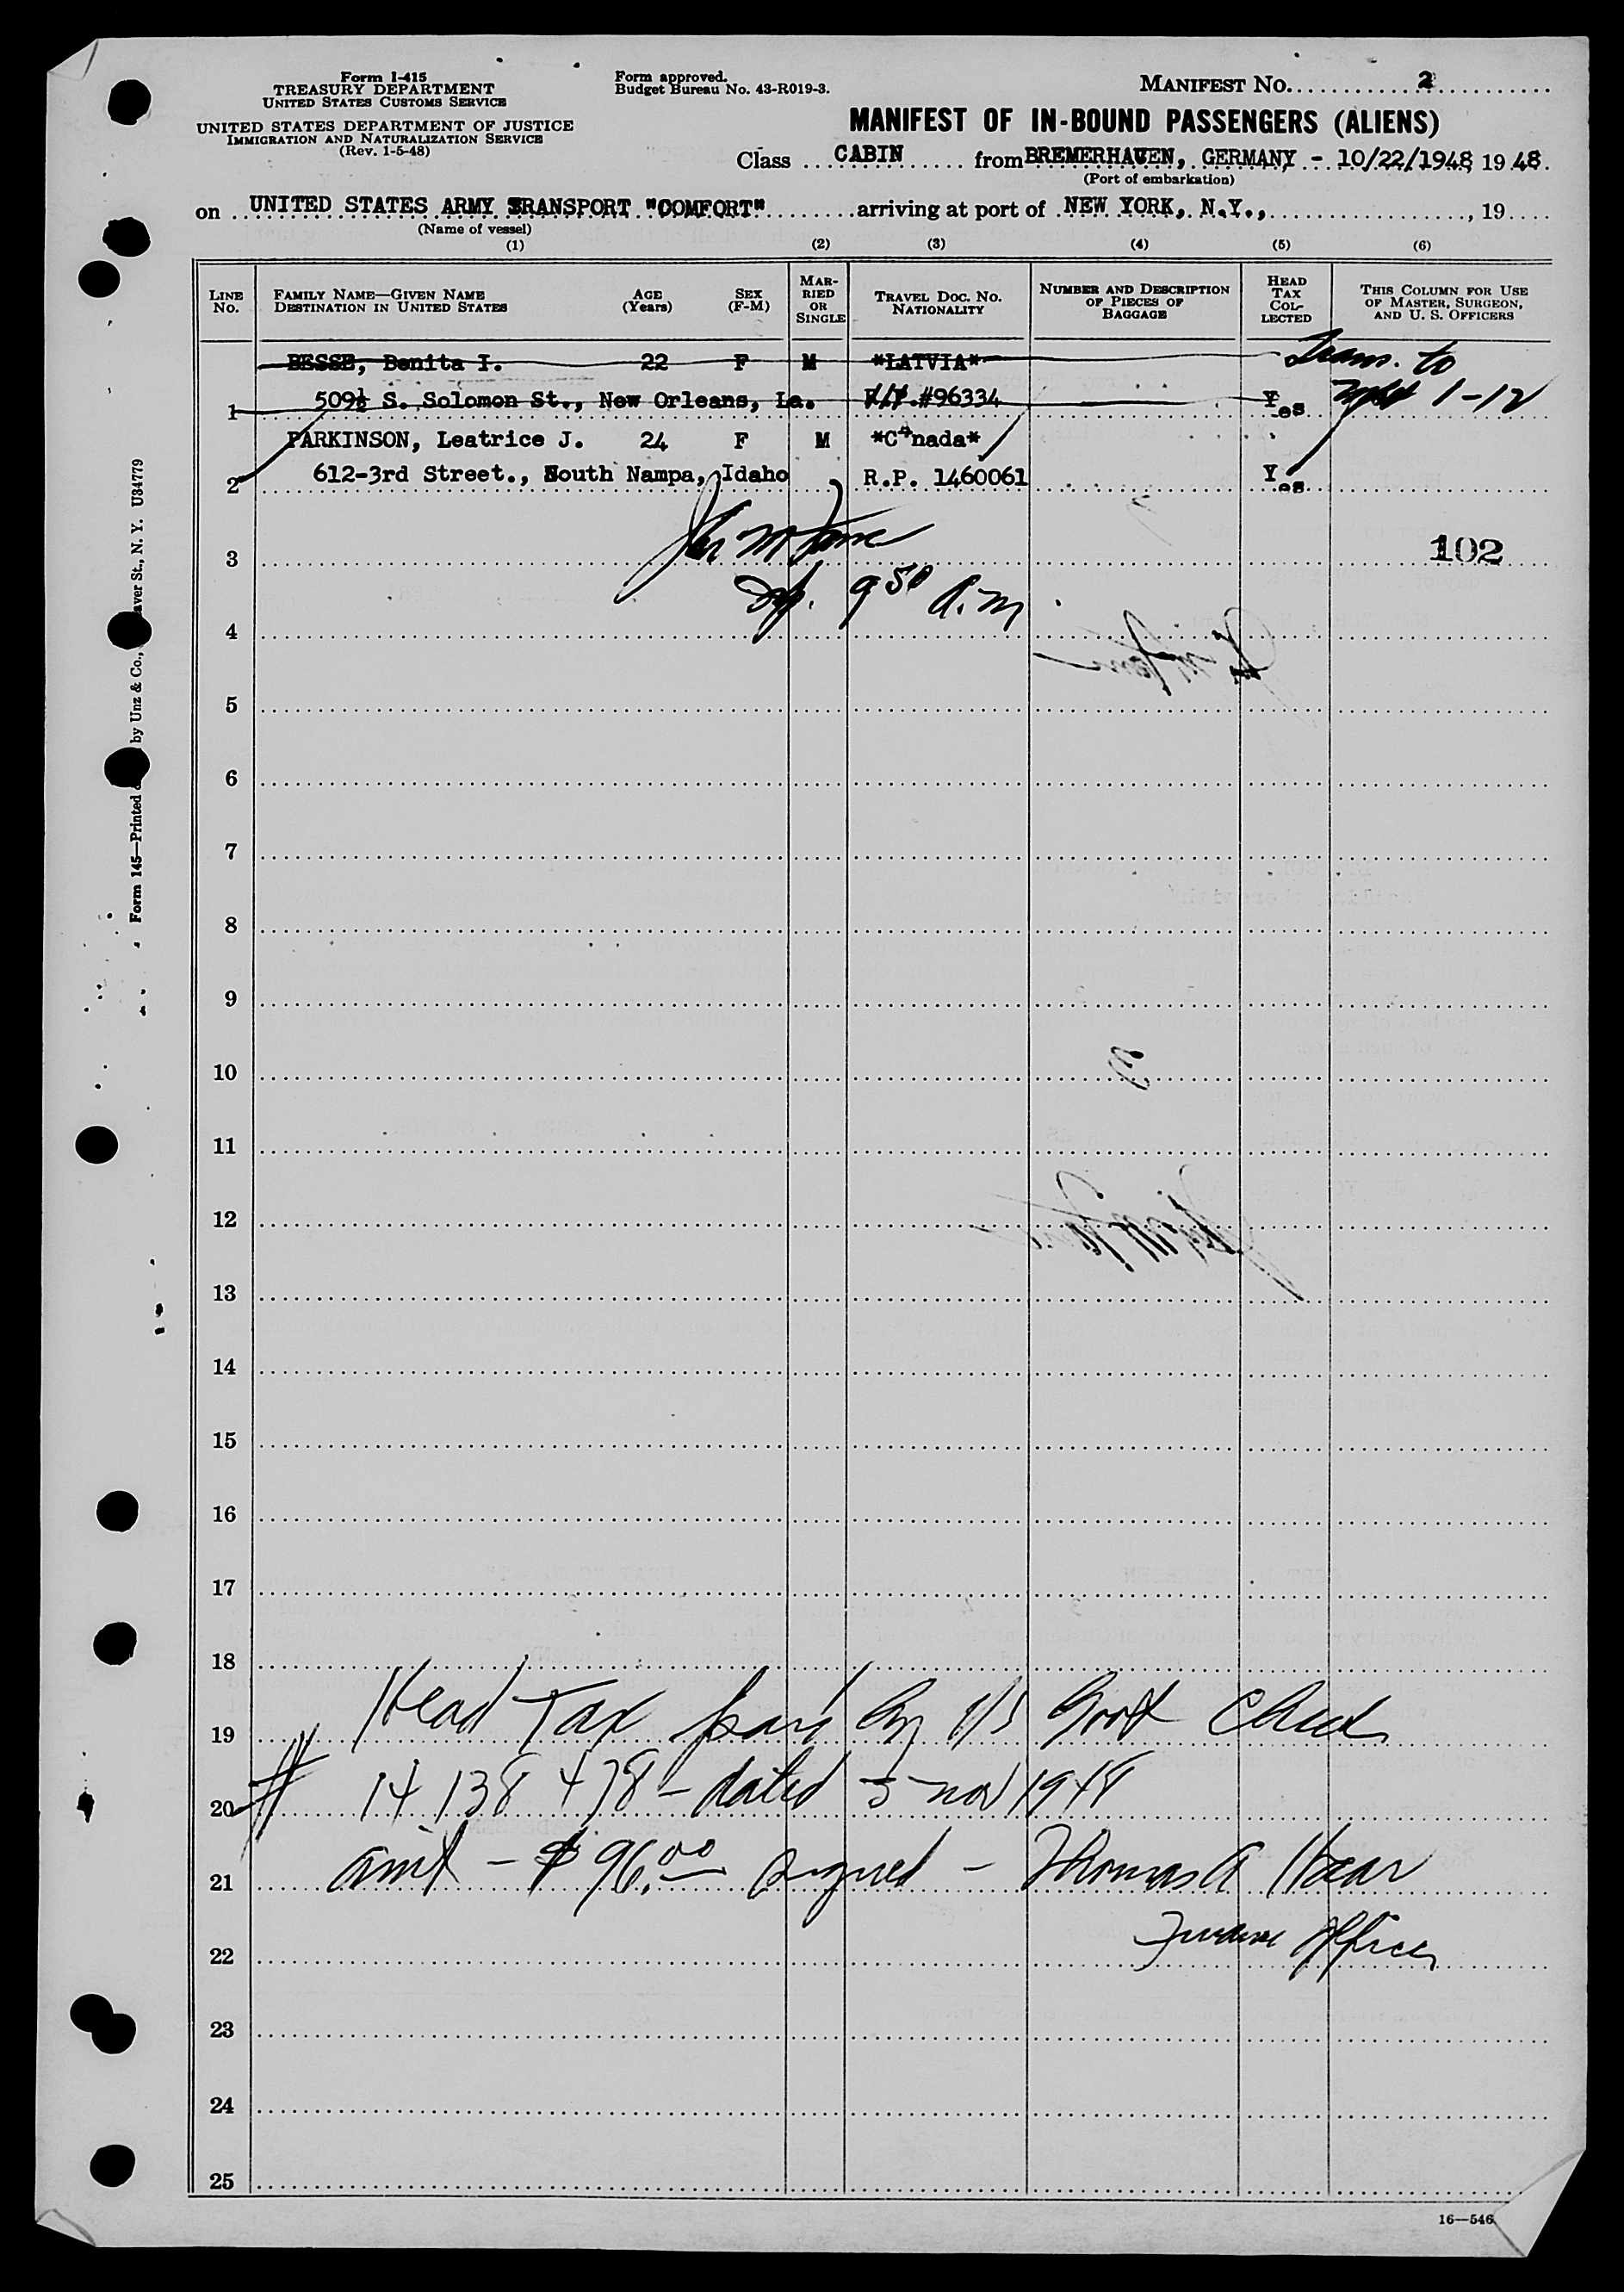 Form I-415
TREASURY DEPARTMENT
UNITED STATES CUSTOMS SERVICE
UNITED STATES DEPARTMENT OF JUSTICE
IMMIGRATION AND NATURALIZATION SERVICE
(Rev. 1-5-48)
Form approved.
Budget Bureau No. 43-R019-3.
MANIFEST NO. 2
MANIFEST OF IN-BOUND PASSENGERS (ALIENS)
Class CABIN from BREMERHAVEN, GERMANY - 10/22/1948, 19 48.
(Port of embarkation)
on UNITED STATES ARMY TRANSPORT "COMFORT" arriving at port of NEW YORK, N.Y., , 19
(Name of vessel)
(1) (2) (3) (4) (5) (6)
LINE NO.
FAMILY NAME—GIVEN NAME
DESTINATION IN UNITED STATES
AGE (Years)
SEX (F-M)
MARRIED OR SINGLE
TRAVEL DOC. NO. NATIONALITY
NUMBER AND DESCRIPTION OF PIECES OF BAGGAGE
HEAD TAX COLLECTED
THIS COLUMN FOR USE OF MASTER, SURGEON, AND U. S. OFFICERS
BESSE, Benita I. 22 F M *LATVIA* Trans. to
1 509½ S. Solomon St., New Orleans, La. #96334 Yes 1-12
PARKINSON, Leatrice J. 24 F M *Canada*
2 612-3rd Street., South Nampa, Idaho R.P. 1460061 Yes
3 102
9 50 a.m
4
5
6
7
8
9
10
11
12
13
14
15
16
17
18
Head Tax paid by US Govt Check
19
# 14 138 478 - dated 5 Nov 1948
20
amt - $96.00 signed - Thomas A Haar
21
Finance Officer
22
23
24
25
16—546
Form 145—Printed by Unz & Co., aver St., N. Y. U34779